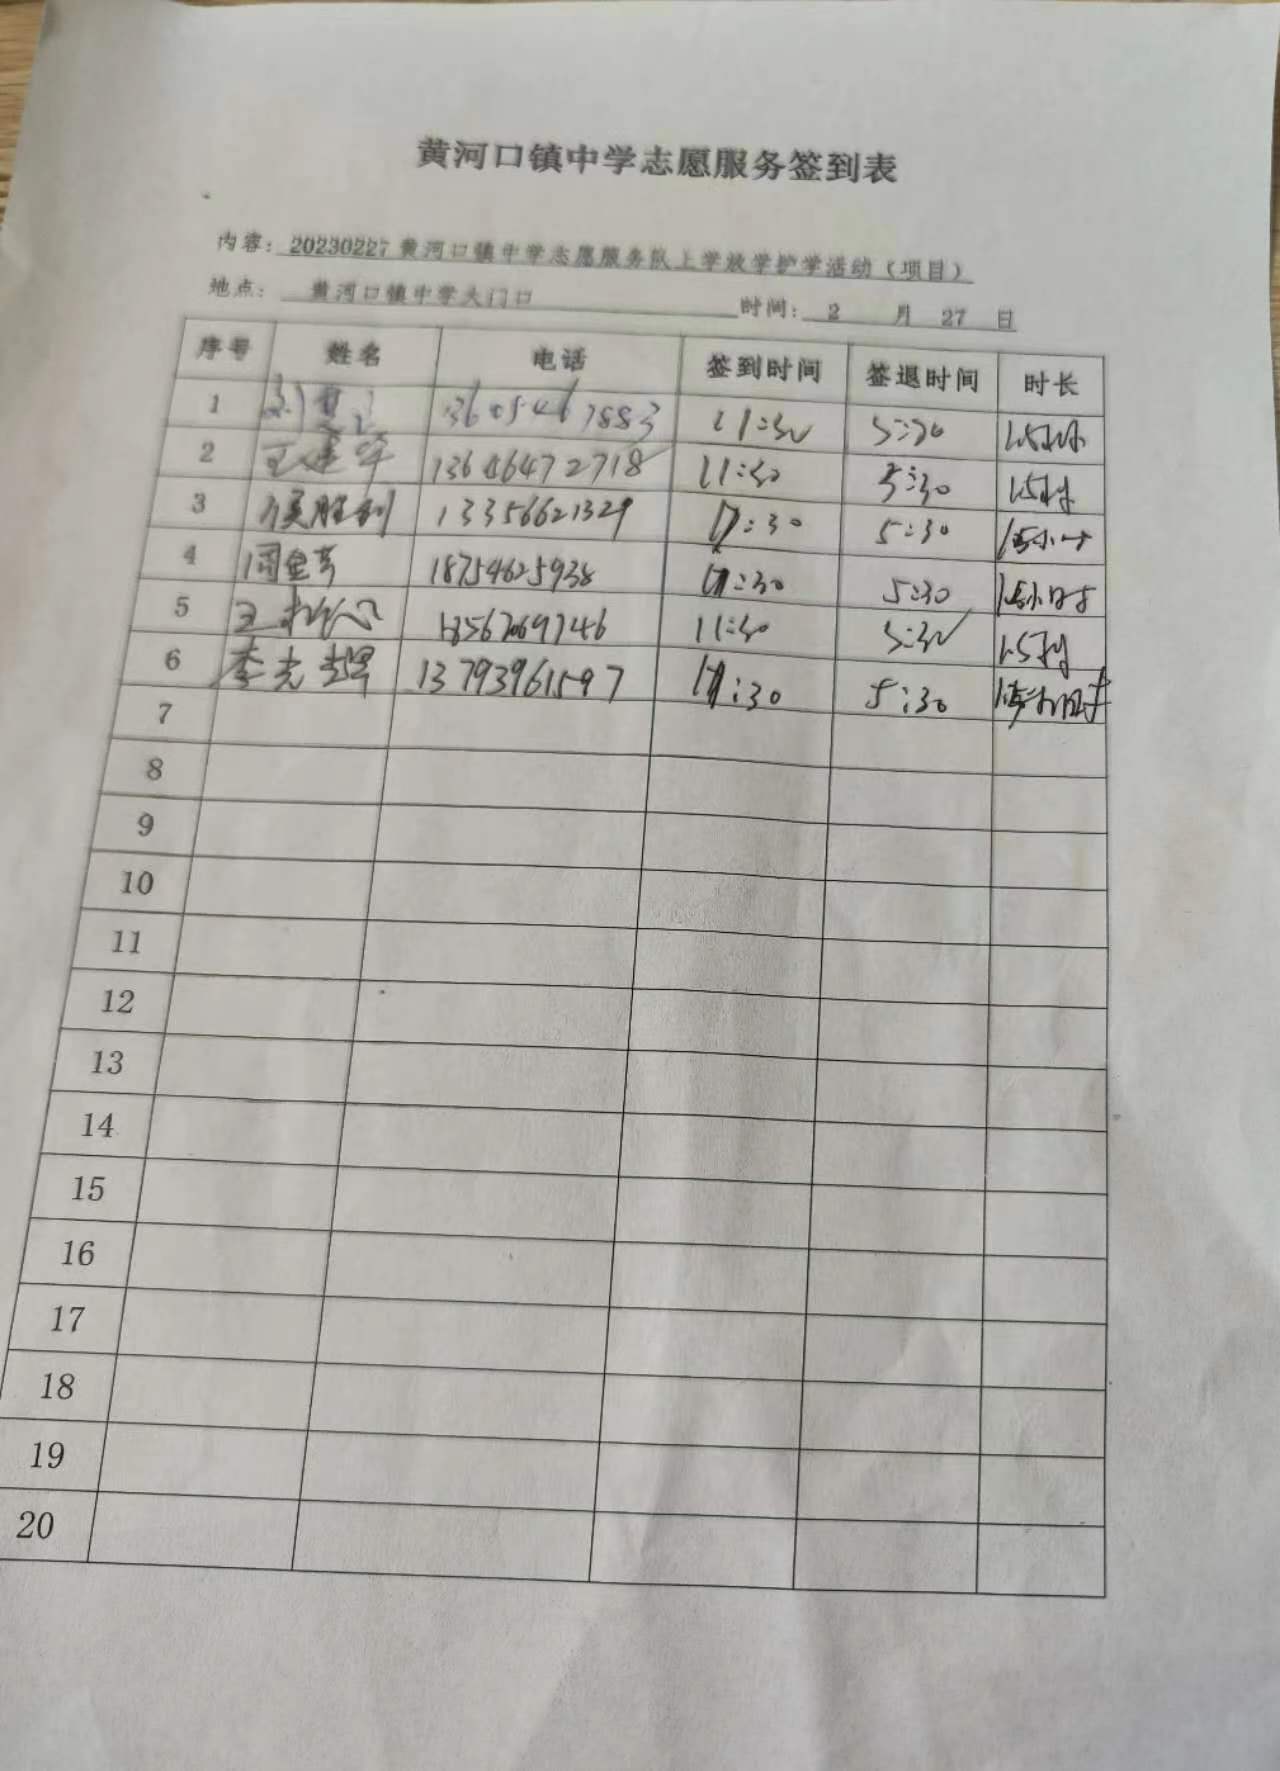 黄河口镇中学志愿服务签到表
内容：20230227黄河口镇中学志愿服务队上学放学护学活动（项目）
地点：黄河口镇中学大门口 时间：2 月 27 日
序号 姓名 电话 签到时间 签退时间 时长
1 11:30
2 王建华 13646472718 11:30 5:30
3 侯胜利 13356621329 :30 5:30
4 周金芳 18754625938 :30 5:30 小时
5 王 11:30 5:30
6 李光辉 13793961597 :30 5:30 小时
7
8
9
10
11
12
13
14
15
16
17
18
19
20